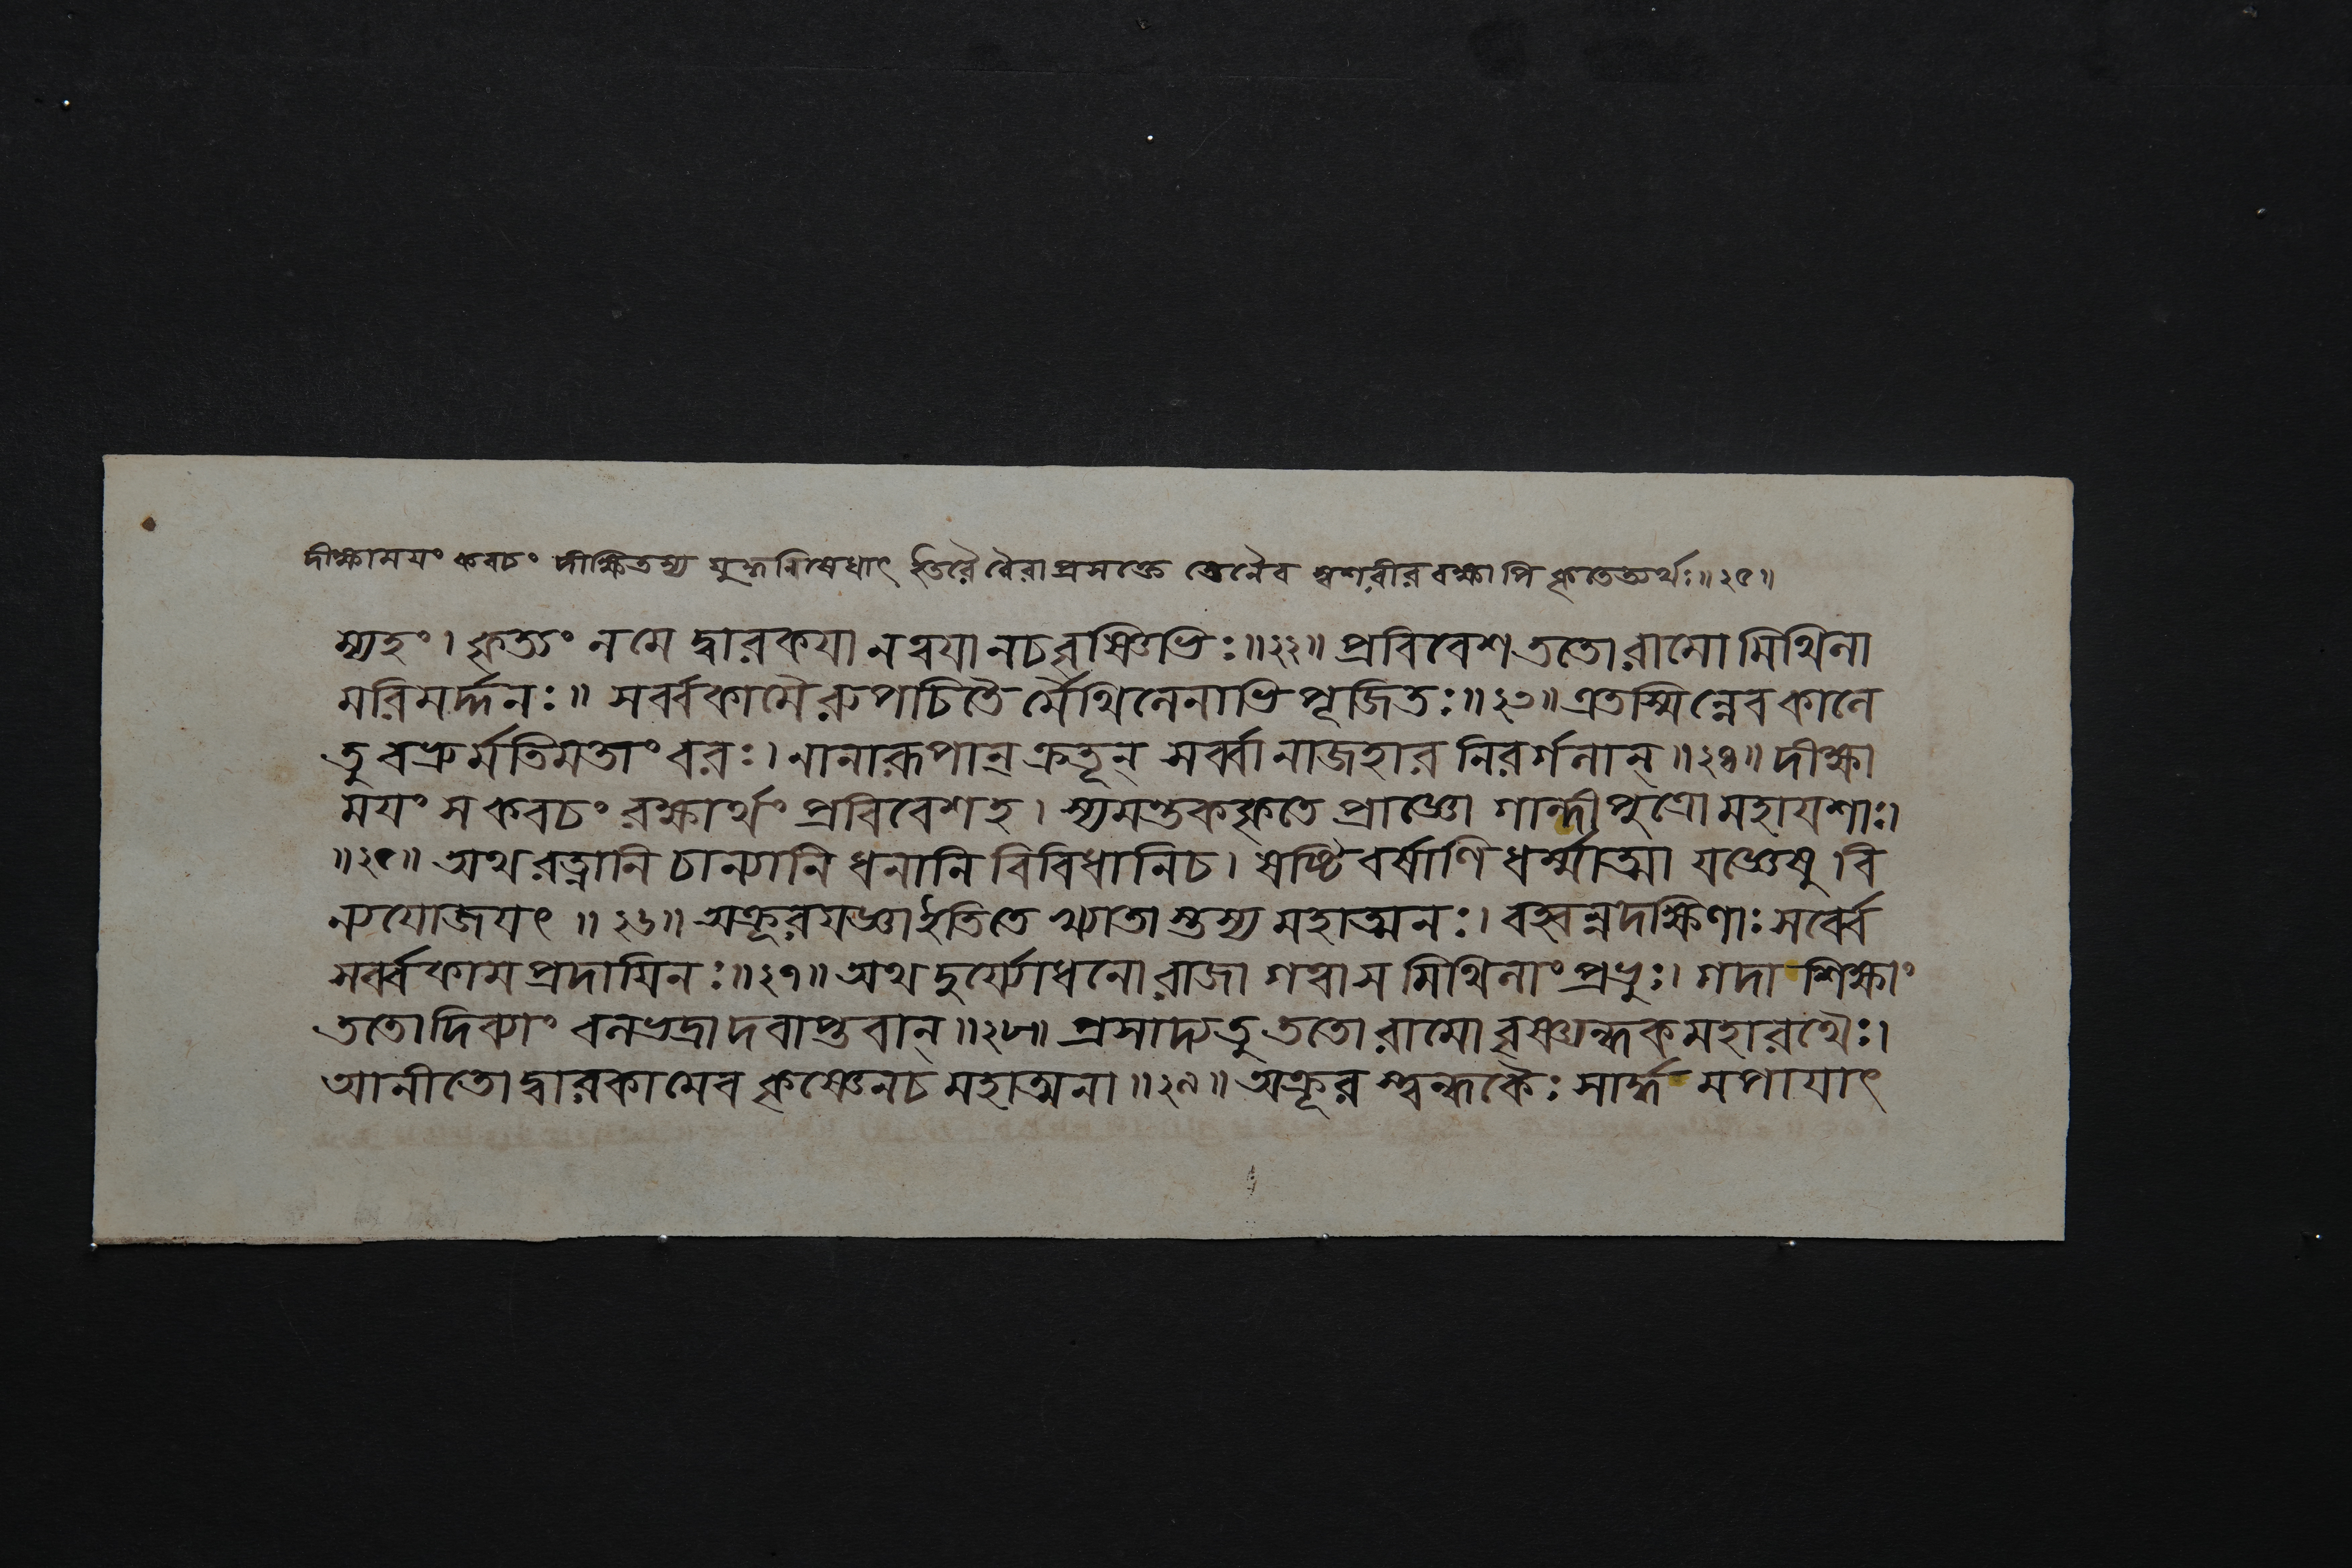 দীক্ষাময়ং কবচং দীক্ষিতস্য যুদ্ধনিষেধাৎ ইতরৈর্বৈরাপ্রসক্তে স্তেনৈব স্বশরীররক্ষাপি কৃতেত্যর্থঃ॥২৫॥
ম্যহং। কৃত্যং নমে দ্বারকয়া নত্বয়া নচবৃষ্ণিভিঃ॥২২॥ প্রবিবেশ ততো রামো মিথিলা
মরিমর্দ্দনঃ॥ সর্ব্বকামৈরুপচিতৈ র্মৈথিলেনাভিপূজিতঃ॥২৩॥ এতস্মিন্নেব কালে
তু বভ্রুর্মতিমতাং বরঃ। নানারূপান্ ক্রতূন্ সর্ব্বানাজহার নিরর্গলান্॥২৪॥ দীক্ষা
ময়ং স কবচং রক্ষার্থং প্রবিবেশহ। স্যমন্তককৃতে প্রাজ্ঞো গান্দীপুত্রো মহাযশাঃ।
॥২৫॥ অথ রত্নানি চান্যানি ধনানি বিবিধানিচ। ষষ্টিং বর্ষাণি ধর্ম্মাত্মা যজ্ঞেষু বি
ন্যযোজয়ৎ॥২৬॥ অক্রূরযজ্ঞা ইতিতে খ্যাতা স্তস্য মহাত্মনঃ। বহ্বন্নদক্ষিণাঃ সর্ব্বে
সর্ব্বকামপ্রদায়িনঃ॥২৭॥ অথ দুর্য্যোধনো রাজা গত্বা স মিথিলাং প্রভুঃ। গদাশিক্ষাং
ততো দিব্যাং বলভদ্রাদবাপ্তবান্॥২৮॥ প্রসাদ্য তু ততো রামো বৃষ্ণ্যন্ধকমহারথৈঃ।
আনীতো দ্বারকামেব কৃষ্ণেনচ মহাত্মনা॥২৯॥ অক্রূর শ্চান্ধকৈঃ সার্দ্ধ মপায়াৎ